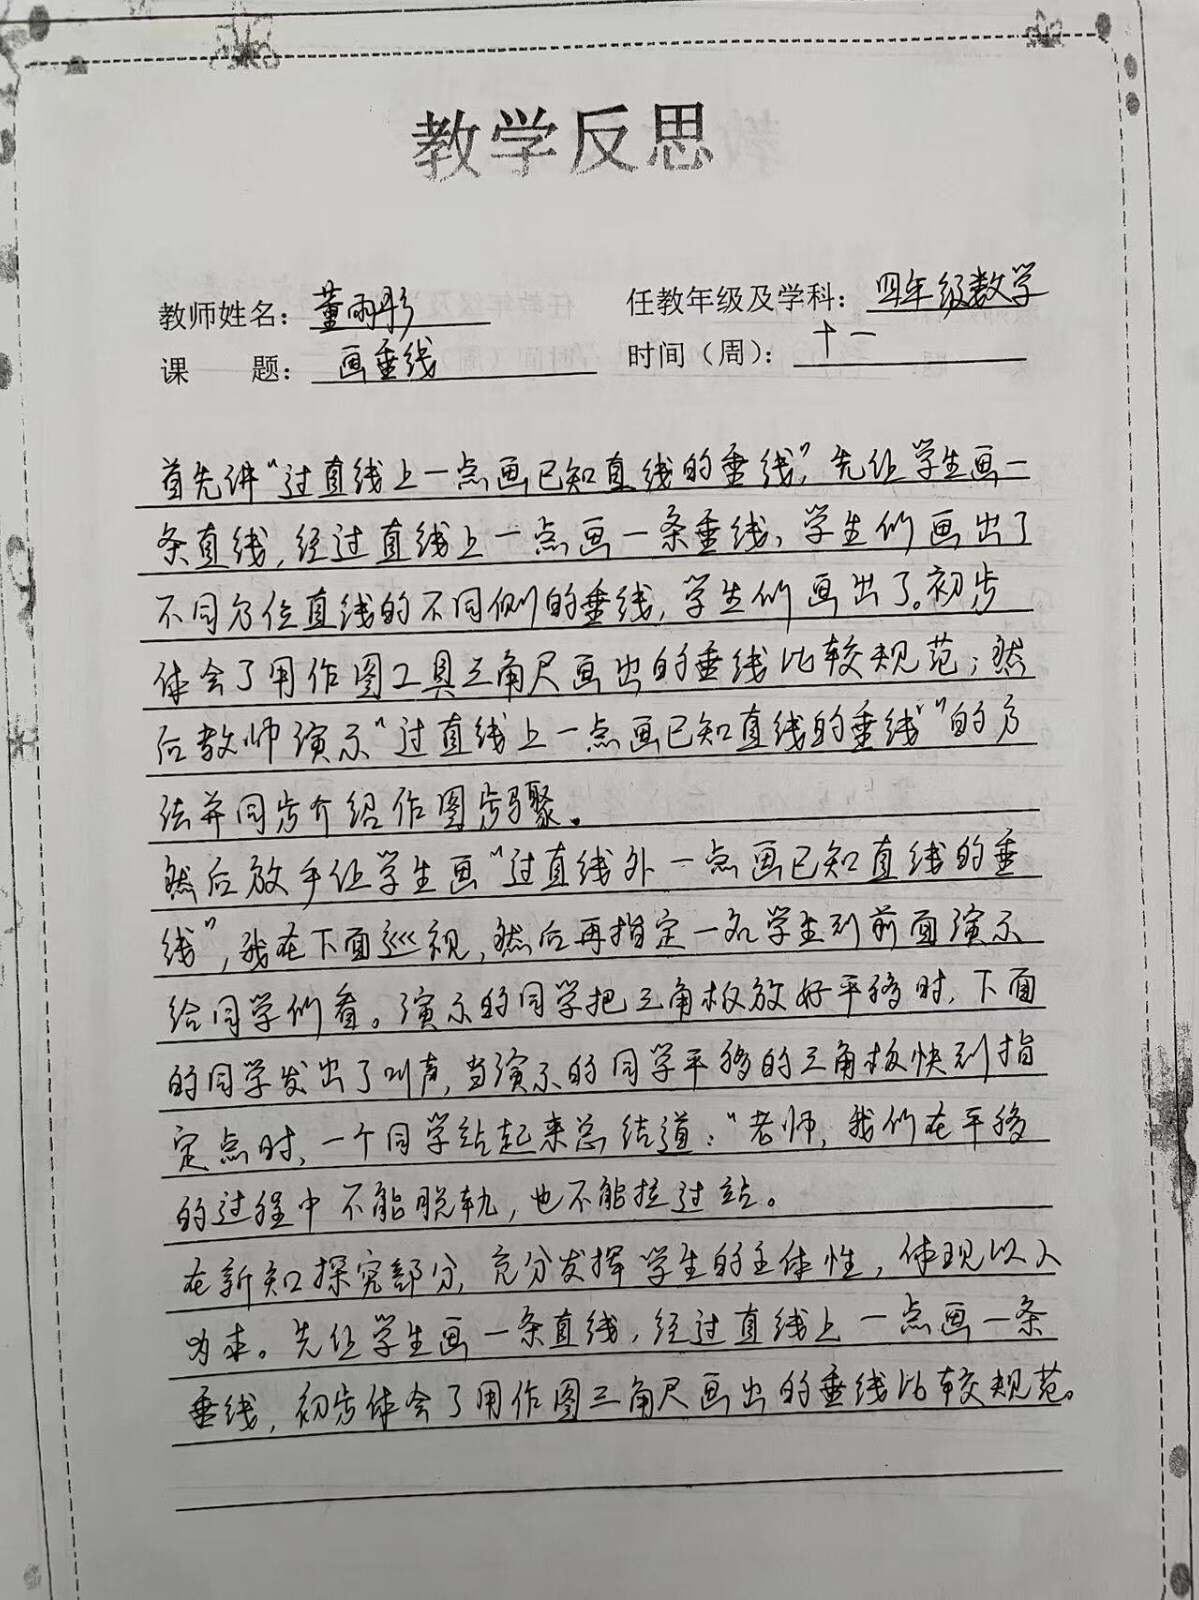 教学反思
教师姓名：董雨彤 任教年级及学科：四年级数学
课 题：画垂线 时间（周）：十一
首先讲“过直线上一点画已知直线的垂线”，先让学生画一
条直线，经过直线上一点画一条垂线，学生们画出了
不同方位直线的不同侧的垂线，学生们画出了。初步
体会了用作图工具三角尺画出的垂线比较规范；然
后教师演示“过直线上一点画已知直线的垂线”的方
法并同步介绍作图步骤。
然后放手让学生画“过直线外一点画已知直线的垂
线”，我在下面巡视，然后再指定一名学生到前面演示
给同学们看。演示的同学把三角板放好平移时，下面
的同学发出了叫声，当演示的同学平移的三角板快到指
定点时，一个同学站起来总结道：“老师，我们在平移
的过程中不能脱轨，也不能拉过站。
在新知探究部分，充分发挥学生的主体性，体现以人
为本。先让学生画一条直线，经过直线上一点画一条
垂线，初步体会了用作图三角尺画出的垂线比较规范。